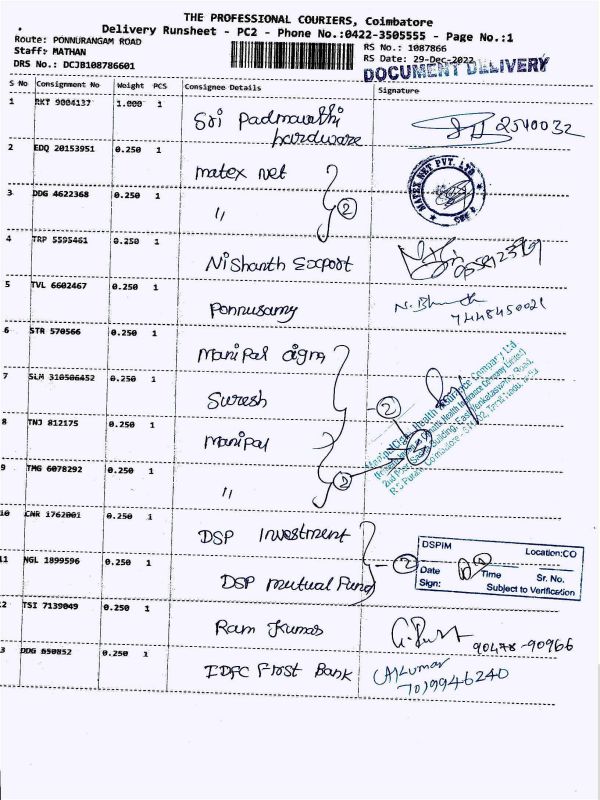 THE PROFESSIONAL COURIERS, Coimbatore
Delivery Runsheet - PC2 - Phone No.:0422-3505555 - Page No.:1
Route: PONNURANGAM ROAD
RS No.: 1087866
Staff: MATHAN
RS Date: 29-Dec-2022
DRS No.: DCJB108786601
DOCUMENT DELIVERY
S No Consignment No Weight PCS Consignee Details Signature
1 RKT 9004137 1.000 1 Sri Padmavathi hardware 2540032
2 EDQ 20153951 0.250 1 matex net
MATEX NET PVT. LTD
3 DDG 4622368 0.250 1 〃 2
4 TRP 5595461 0.250 1 Nishanth Export
5 TVL 6602467 0.250 1 Ponnusamy 7448450021
6 STR 570566 0.250 1 Manipal Cigna
7 SLM 310506452 0.250 1 Suresh 2
8 TNJ 812175 0.250 1 Manipal
9 TMG 6078292 0.250 1 〃 2
10 CNR 1762001 0.250 1 DSP Investment
DSPIM Location:CO
Date Time Sr. No.
Sign: Subject to Verification
11 NGL 1899596 0.250 1 DSP Mutual Fund 2
2 TSI 7139049 0.250 1 Ram Kumar 90478-90966
3 DDG 650852 0.250 1 IDFC First Bank Kumar
7019946240